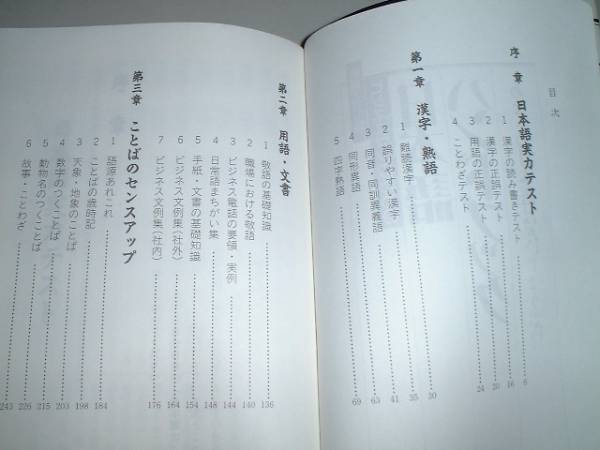 目次
序章 日本語実力テスト
1 漢字の読み書きテスト 6
2 漢字の正誤テスト 16
3 用語の正誤テスト 20
4 ことわざテスト 24
第一章 漢字・熟語
1 難読漢字 30
2 誤りやすい漢字 35
3 同音・同訓異義語 41
4 同形異語 63
5 四字熟語 69
第二章 用語・文書
1 敬語の基礎知識 136
2 職場における敬語 140
3 ビジネス電話の要領・実例 144
4 日常語まちがい集 148
5 手紙・文書の基礎知識 154
6 ビジネス文例集(社外) 164
7 ビジネス文例集(社内) 176
第三章 ことばのセンスアップ
1 語源あれこれ 184
2 ことばの歳時記 191
3 天象・地象のことば 198
4 数字のつくことば 203
5 動物名のつくことば 215
6 故事・ことわざ 226
243